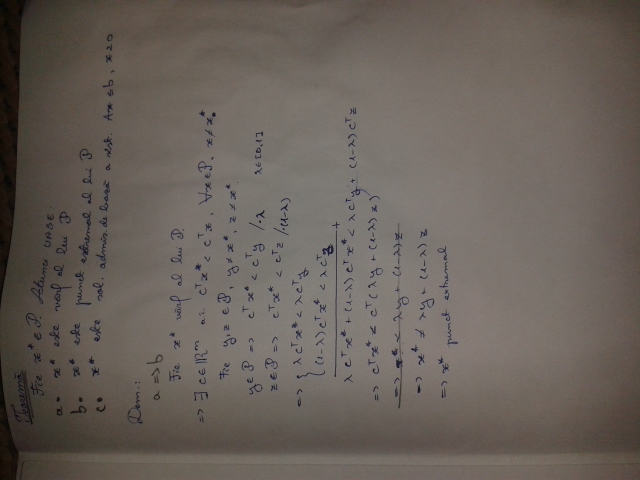 Teoremă
Fie x* ∈ P. Atunci UASE:
a. x* este vârf al lui P
b. x* este punct extremal al lui P
c. x* este sol. admis. de bază a sist. Ax ≤ b, x ≥ 0
Dem.:
a => b
Fie x* vârf al lui P.
=> ∃ c ∈ ℝⁿ a.î. cᵀx* < cᵀx, ∀x ∈ P, x ≠ x*.
Fie y, z ∈ P, y ≠ x*, z ≠ x*
y ∈ P => cᵀx* < cᵀy /·λ λ ∈ [0,1]
z ∈ P => cᵀx* < cᵀz /·(1-λ)
=> { λcᵀx* < λcᵀy
(1-λ)cᵀx* < λcᵀz
+
λcᵀx* + (1-λ)cᵀx* < λcᵀy + (1-λ)cᵀz
=> cᵀx* < cᵀ(λy + (1-λ)z)
=> x* < λy + (1-λ)z
=> x* ≠ λy + (1-λ)z
=> x* punct extremal